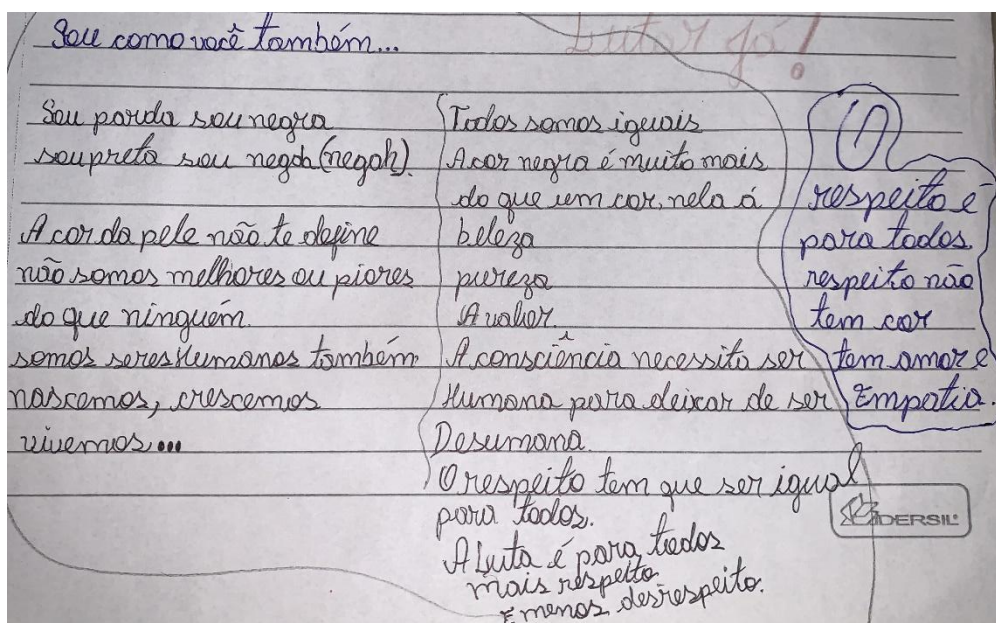 Sou como você também...
Lutar já!
Sou parda sou negra
sou preta sou negah (negah).
A cor da pele não te define
não somos melhores ou piores
do que ninguém.
somos seres Humanos também
nascemos, crescemos
vivemos...
Todos somos iguais
A cor negra é muito mais
do que um cor, nela á
beleza
pureza
A valor.
A consciência necessita ser
Humana para deixar de ser
Desumana.
O respeito tem que ser igual
para todos.
A Luta é para todos
mais respeito
E menos desrespeito.
O
respeito é
para todos,
respeito não
tem cor
tem amor e
Empatia.
DERSIL